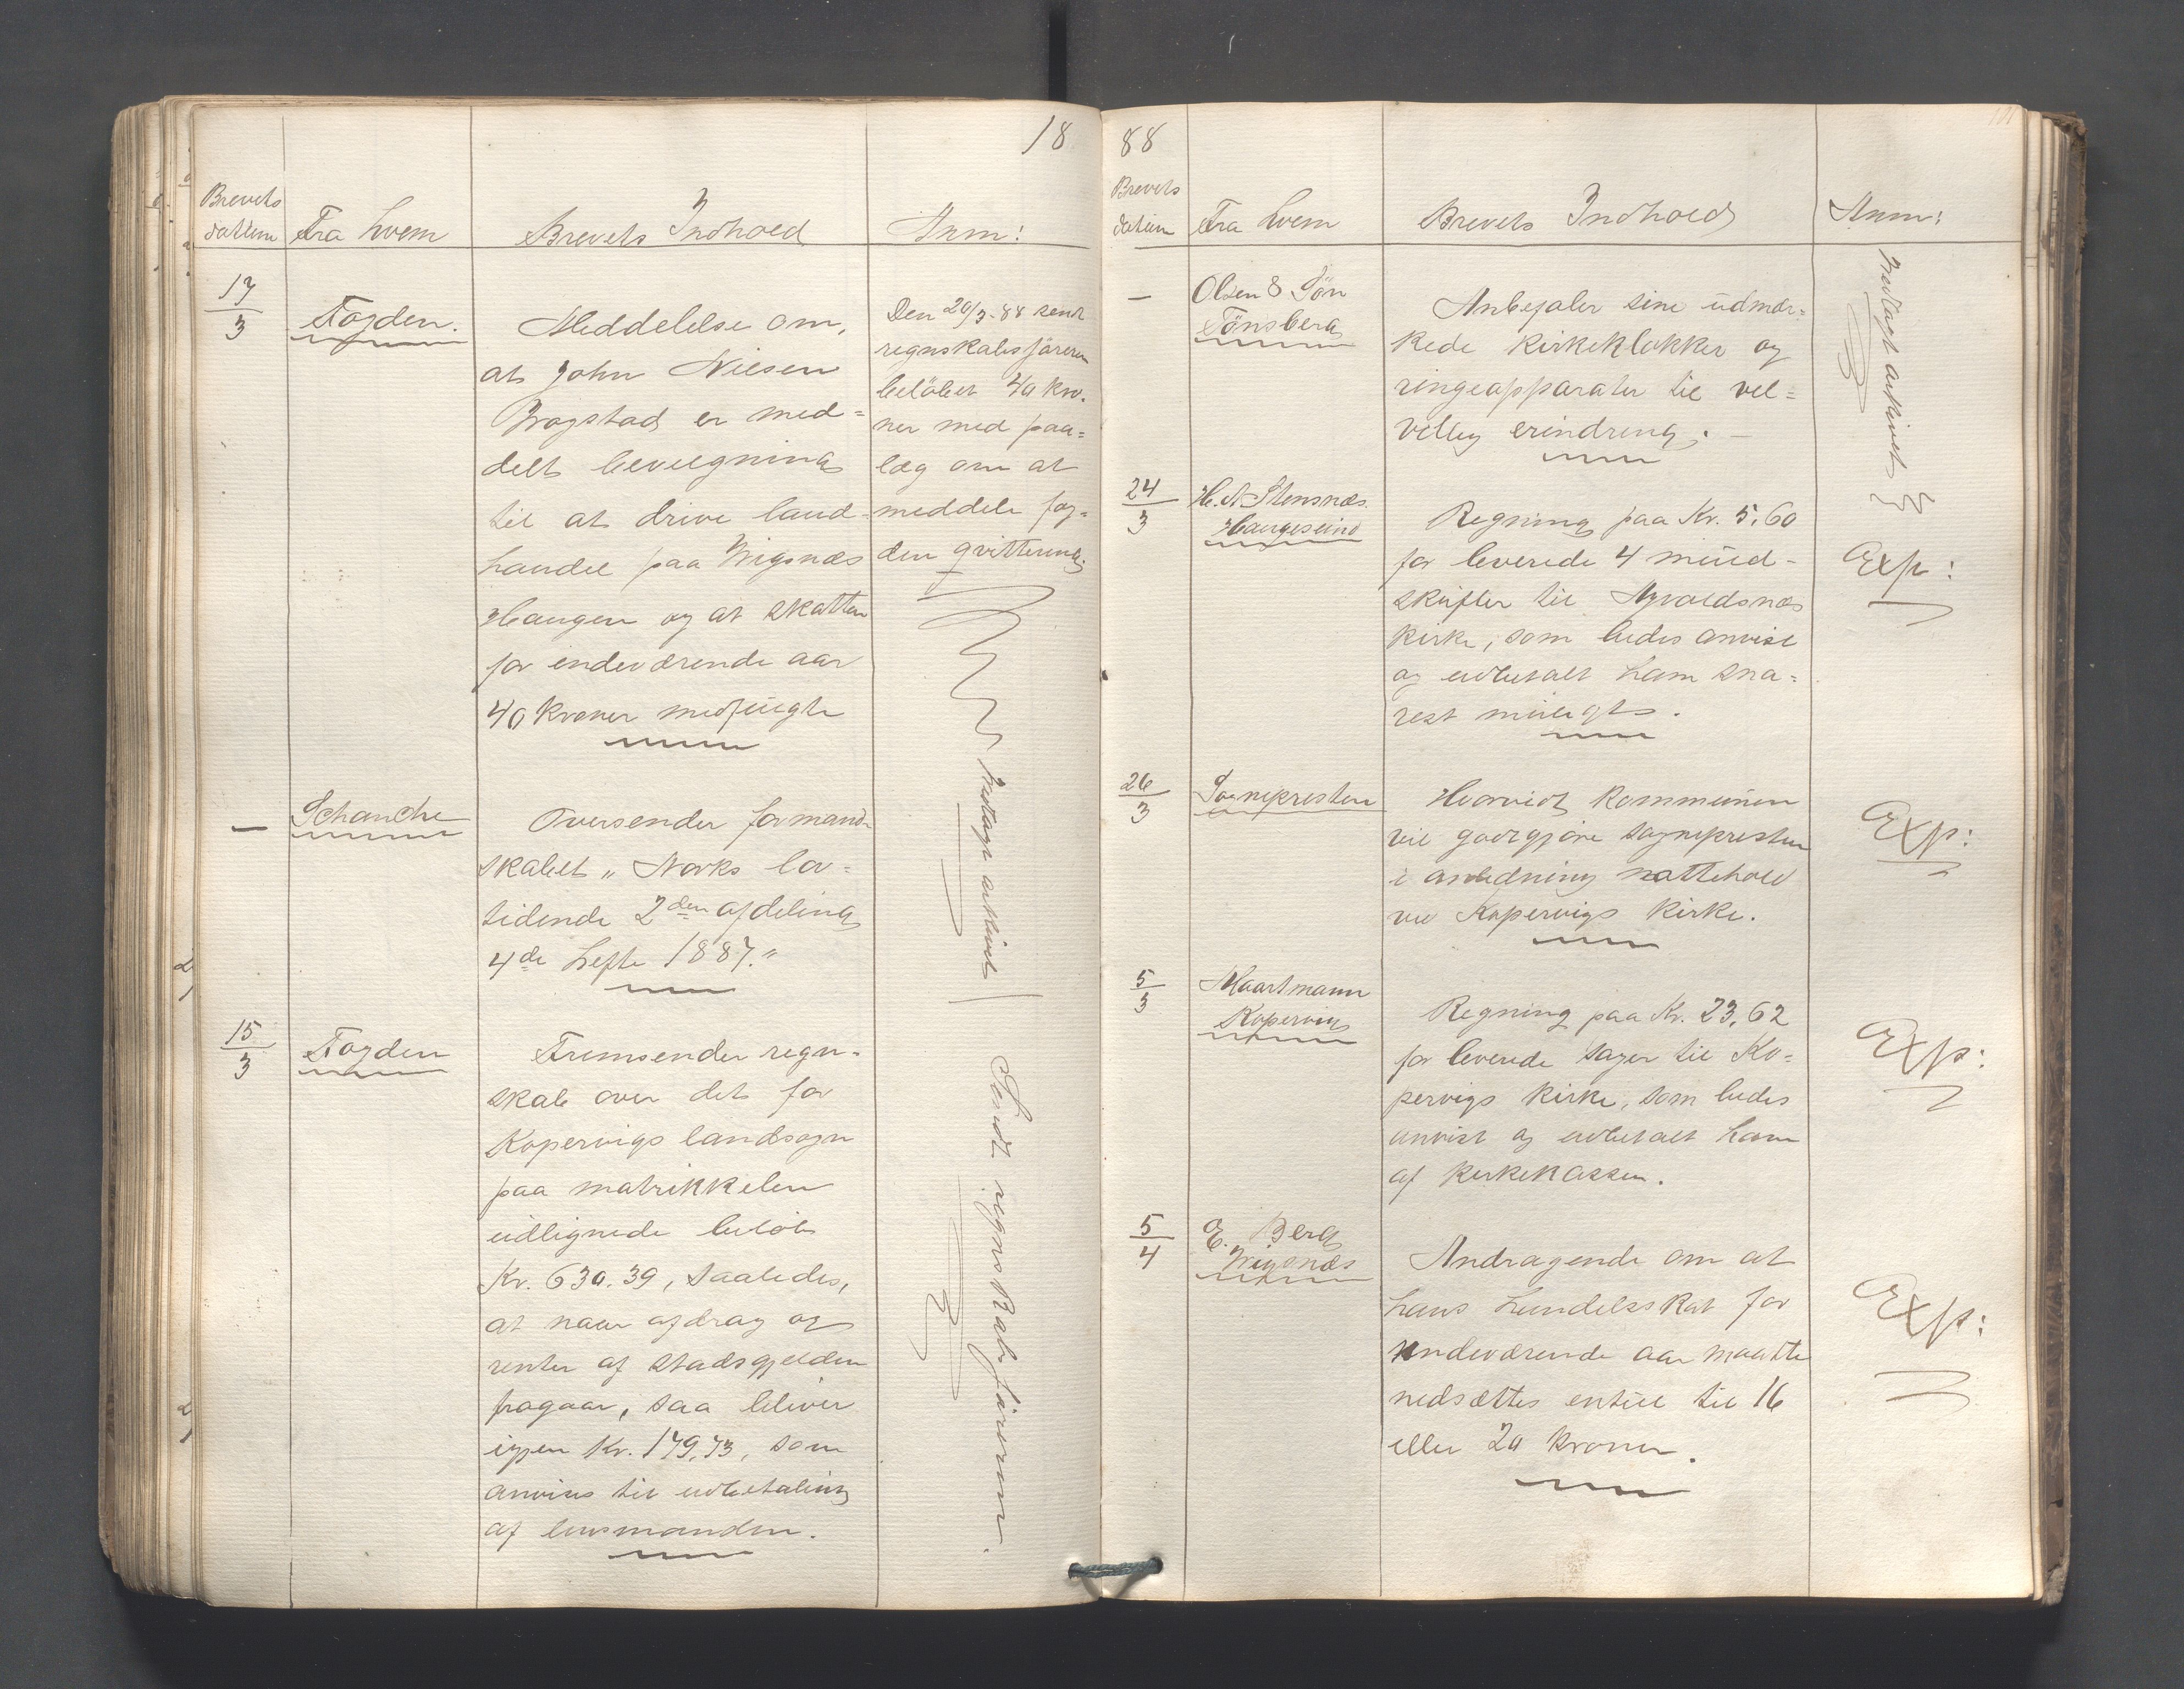 18
Brevets
datum
Fra hvem
Brevets Indhold
Anm:
17/3
Fogden.
Meddelelse om,
at John Nilsen
Bogstad er med=
delt bevilgning
til at drive land-
handel paa Vigsnæs
Haugen og at skatten
for indeværende aar
40 Kroner medfulgte
Den 20/3-88 sendt
regnskabsföreren
belöbet 40 kro-
ner med paa=
læg om at
meddele fog=
den qvittering.
—
Schanche
Oversender formand-
skabet „ Norks lov-
tidende 2den afdeling
4de hefte 1887."
Nedlagt arkivet
15/3
Fogden
Fremsender regn-
skab over det for
Kopervigs landsogn
paa matrikkelen
udlignede belöb
Kr. 630.39, saaledes,
at naar afdrag og
renter af stadsgjelden
fragaar, saa bliver
igjen Kr. 179,73, som
anvises til udbetaling
af lensmanden.
Sendt regnskabsföreren.
88
Brevets
datum
Fra hvem
Brevets Indhold
Anm:
—
Olsen & Sön
Tönsberg
Anbefaler sine udmær=
kede kirkeklokker og
ringeapparater til vel=
villig erindring. —
Nedlagt arkivet
24/3
H. A. Stensnæs.
Haugesund
Regning paa Kr. 5,60
for leverede 4 muld-
skufler til Avaldsnæs
kirke, som bedes anvist
og udbetalt ham sna=
rest muligt.
Exp:
26/3
Sognepresten
Hvorvidt kommunen
vil godtgjöre sognepresten
i anledning nattehold
ved Kopervigs kirke.
Exp:
5/3
Maartmann
Kopervig
Regning paa Kr. 23,62
for leverede sager til Ko=
pervigs kirke, som bedes
anvist og udbetalt ham
af kirkekassen.
Exp:
5/4
E. Berg
Vigsnæs
Andragende om at
hans hundelsskat for
indeværende aar maatte
nedsættes entill til 16
eller 20 kroner.
Exp: